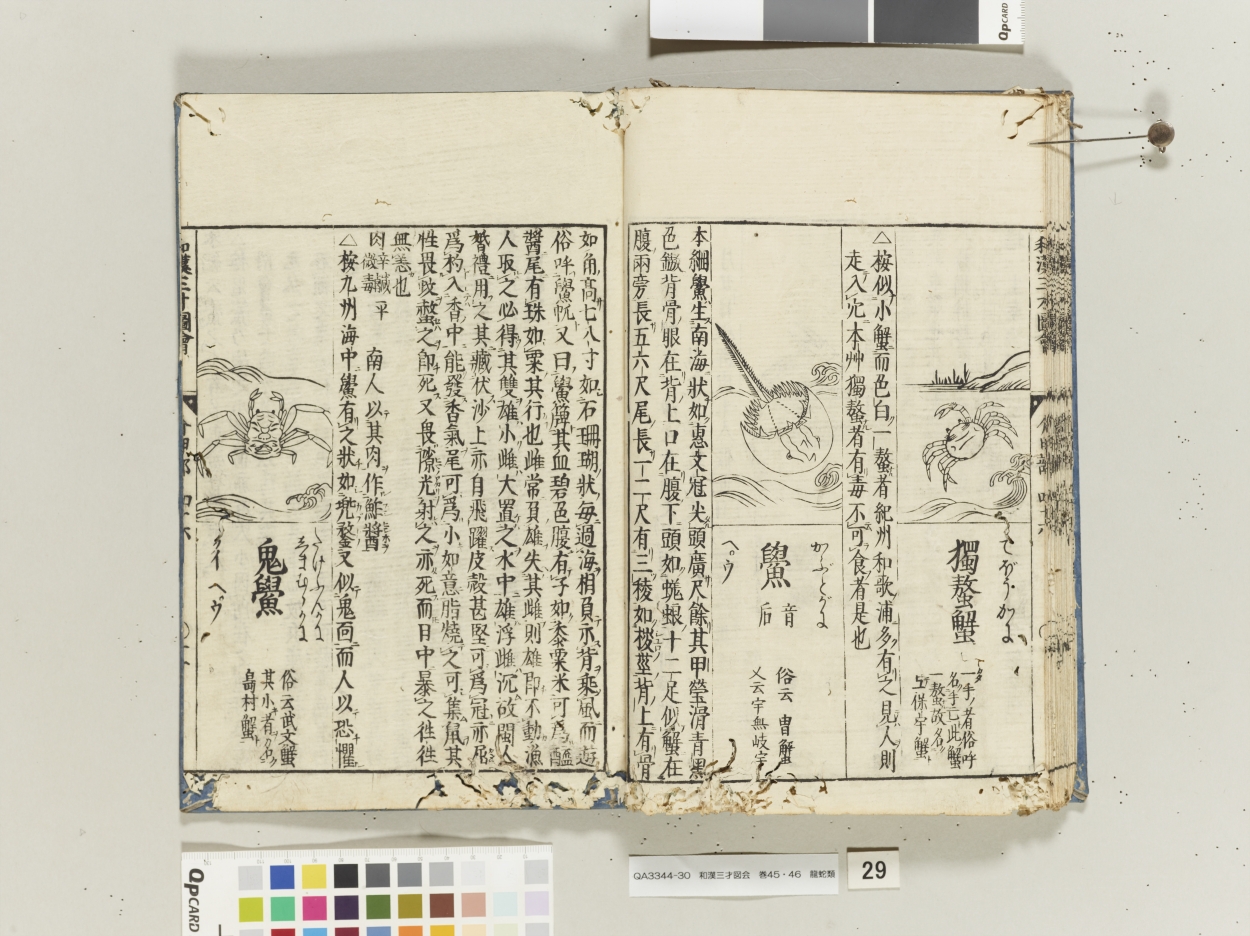 獨螯蟹
てぼうかに
一手ノ者俗呼
名手亡此蟹
螯故名
△按似小蟹而色白一螯者紀州和歌浦多有之見人則
走入穴本艸獨螯者有毒不可食者是也
鱟
音
后
かぶとがに
俗云 冑蟹
ヘ○ウ
本綱鱟生南海狀如惠文冠尖頭廣尺餘其甲瑩滑青黑
色鏉背骨眼在背上口在腹下頭如蜣蜋十二足似蟹在
腹兩旁長五六尺尾長一二尺有三稜如椶莖背上有骨
如角高七八寸如石珊瑚狀毎過海相負示背乘風而遊
俗呼鱟帆又曰鱟簰其血碧色腹有子如黍粟米可爲醯
醬尾有珠如粟其行也雌常負雄失其雌則雄即不動漁
人取之必得其雙雄小雌大置之水中雄浮雌沉故閩人
婚禮用之其藏伏沙上亦自飛躍皮殻甚堅可爲冠亦屈
爲杓入香中能發香氣尾可爲小如意脂燒之可集鼠其
性畏蚊螫之即死又畏隙光射之亦死而日中暴之往徃
無恙也
肉
辛鹹
微毒
平
南人以其肉作鮓醬
△按九州海中鱟有之狀如兜鍪又似鬼面而人以恐懼
鬼鱟
俗云武文蟹
其小者名
島村蟹
クイ ヘ○ウ
和漢三才圖會
QA3344-30 和漢三才図会 巻45・46 龍蛇類
29
QpCARD
QpCARD